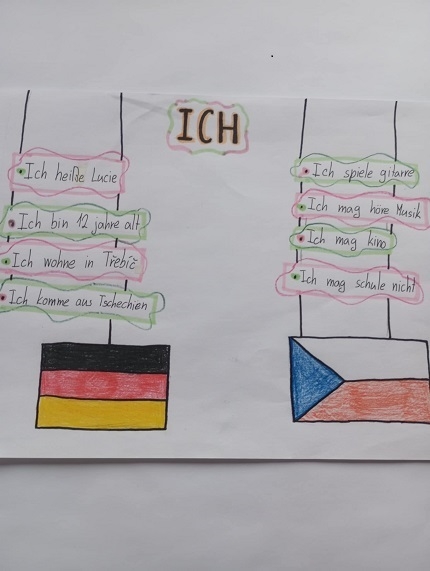 ICH
Ich heiße Lucie
Ich bin 12 jahre alt
Ich wohne in Třebíč
Ich komme aus Tschechien
Ich spiele gitarre
Ich mag höre Musik
Ich mag kino
Ich mag schule nicht